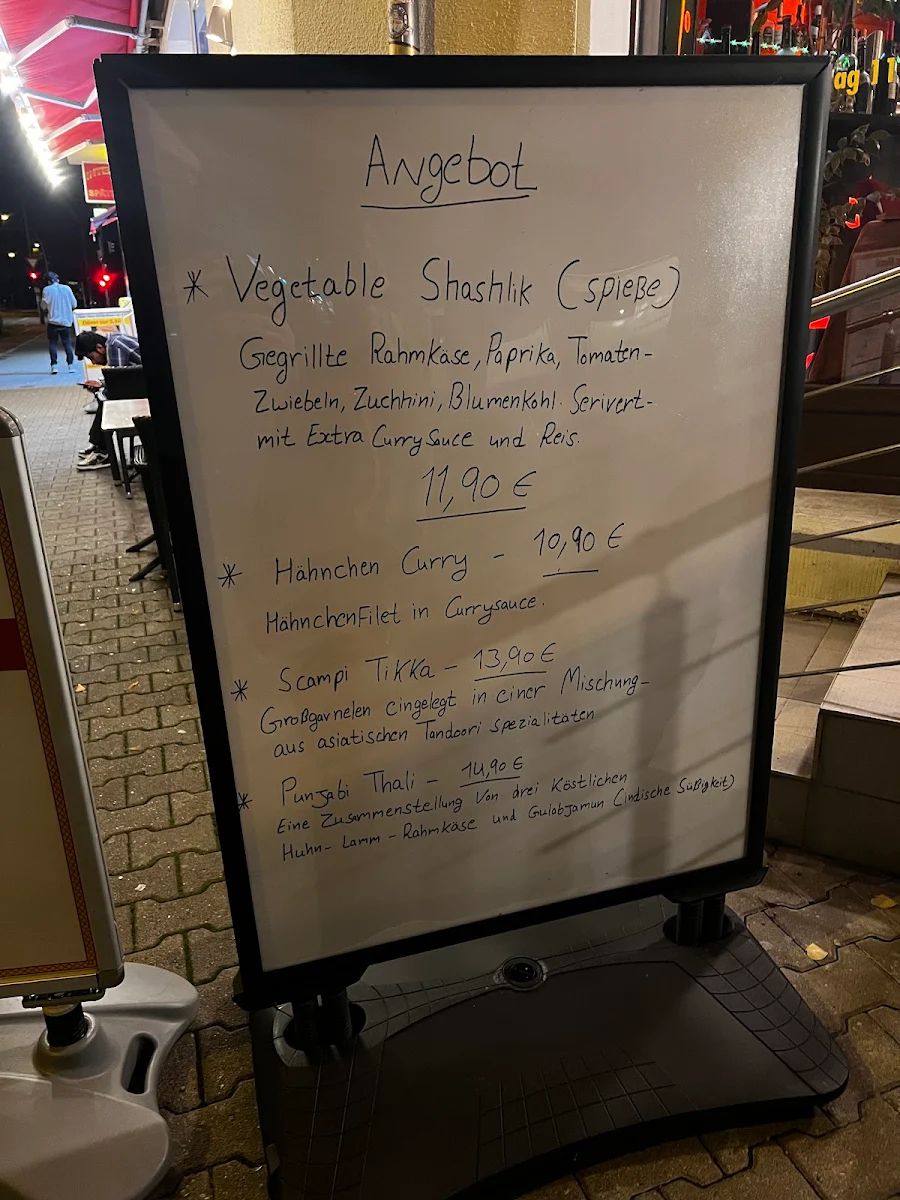 Angebot
* Vegetable Shashlik (spieße)
Gegrillte Rahmkäse, Paprika, Tomaten-
Zwiebeln, Zuchhini, Blumenkohl. Serivert-
mit Extra Curry Sauce und Reis.
11,90 €
* Hähnchen Curry - 10,90 €
HähnchenFilet in Currysauce.
* Scampi Tikka - 13,90 €
Großgarnelen eingelegt in einer Mischung-
aus asiatischen Tandoori spezialitäten
* Punjabi Thali - 14,90 €
Eine Zusammenstellung Von drei Köstlichen
Huhn- Lamm - Rahmkäse und Gulobjamun (indische Süßigkeit)
ag